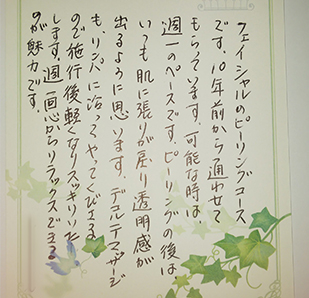 フェイシャルのピーリングコース
です。10年前から通わせて
もらっています。可能な時は、
週一のペースです。ピーリングの後は
いつも肌に張りが戻り透明感が
出るように思います。デコルテマッサージ
も、リンパに沿ってやってくださる
ので施行後軽くなりスッキリした
します。週一回心からリラックスできる
のが魅力です。